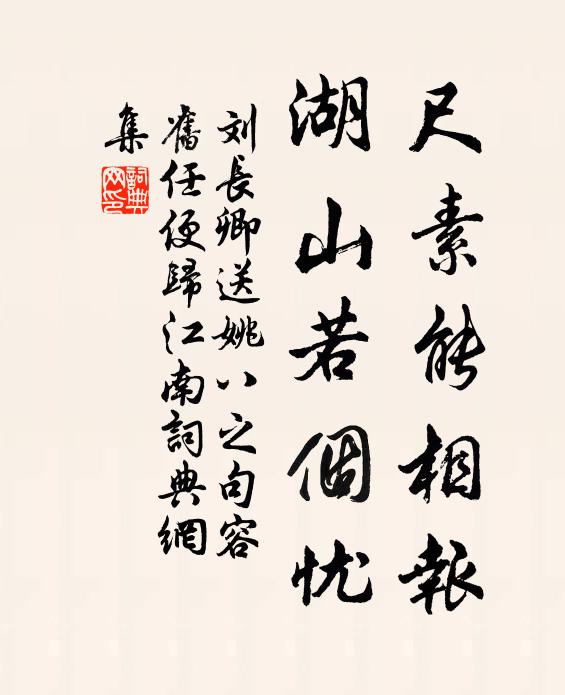 尺素能相報
湖山若個忧
刘長卿送姚八之句容
舊任便歸江南詞典網
集
詞典网印